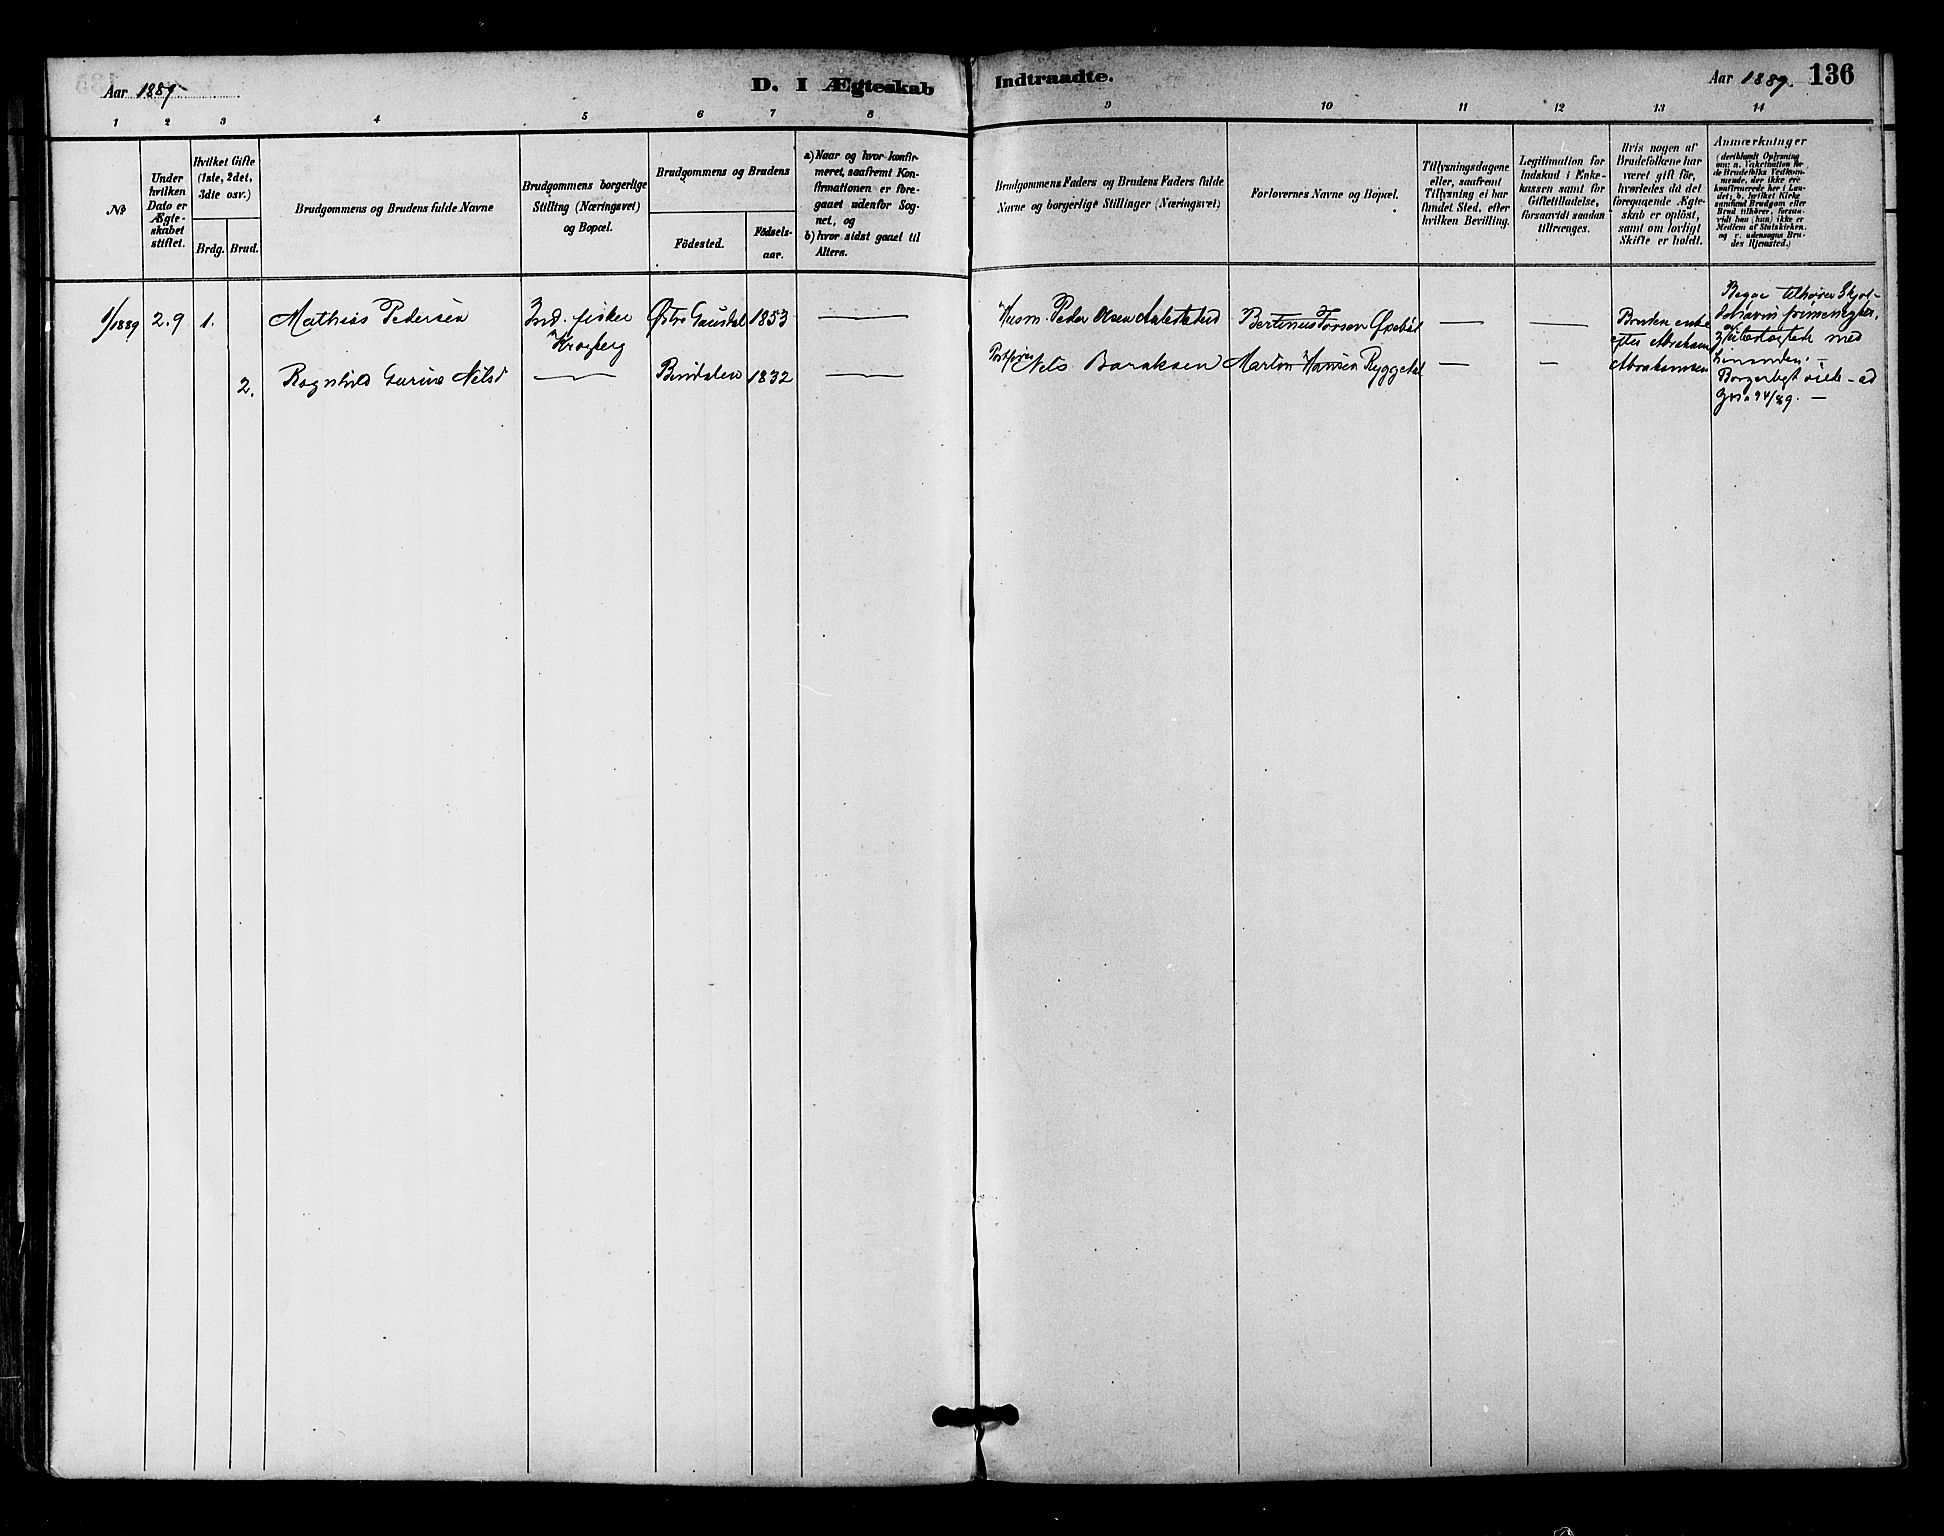 Aar 1889
D. I Ægteskab
Indtraadte.
Aar 1889.
136
1 2 3 4 5 6 7 8
9 10 11 12 13 14
№
Under hvilken Dato er Ægteskabet stiftet.
Hvilket Gifte (1ste, 2det, 3dte osv.)
Brdg. Brud.
Brudgommens og Brudens fulde Navne
Brudgommens borgerlige Stilling (Næringsvei) og Bopæl.
Brudgommens og Brudens
Födested.
Födselsaar.
a) Naar og hvor konfirmeret, saafremt Konfirmationen er foregaaet udenfor Sognet, og
b) hvor sidst gaaet til Alters.
Brudgommens Faders og Brudens Faders fulde Navne og borgerlige Stillinger (Næringsvei)
Forlovernes Navne og Bopæl.
Tillysningsdagene eller, saafremt Tillysning ei har fundet Sted, efter hvilken Bevilling.
Legitimation for Indskud i Enkekassen samt for Giftetilladelse, forsaavidt saadan tiltrænges.
Hvis nogen af Brudefolkene har været gift för, hvorledes da det foregaaende Ægteskab er oplöst, samt om lovligt Skifte er holdt.
Anmærkninger (deriblandt Oplysning om: a. Vakcination for de Brudefolks Vedkommende, der ikke ere konfirmerede her i Landet; b. hvilket Kirkesamfund Brudgom eller Brud tilhörer, forsaavidt han (hun) ikke er Medlem af Statskirken. og c. udensogns Brudes Hjemsted.)
1/1889 2.9 1. Mathias Pedersen
Ind. fisker
Østre Gausdal 1853
Husm. Peder Olsen
Bertinus
Bruden enke
efter Abraham
Abrahamsen
Begge tilhører
med
2. Ragnhild Gurine Nilsd
Bindalen 1832
Nels Baraksen
Martin Hansen Ryggedal
Borgerligt viede